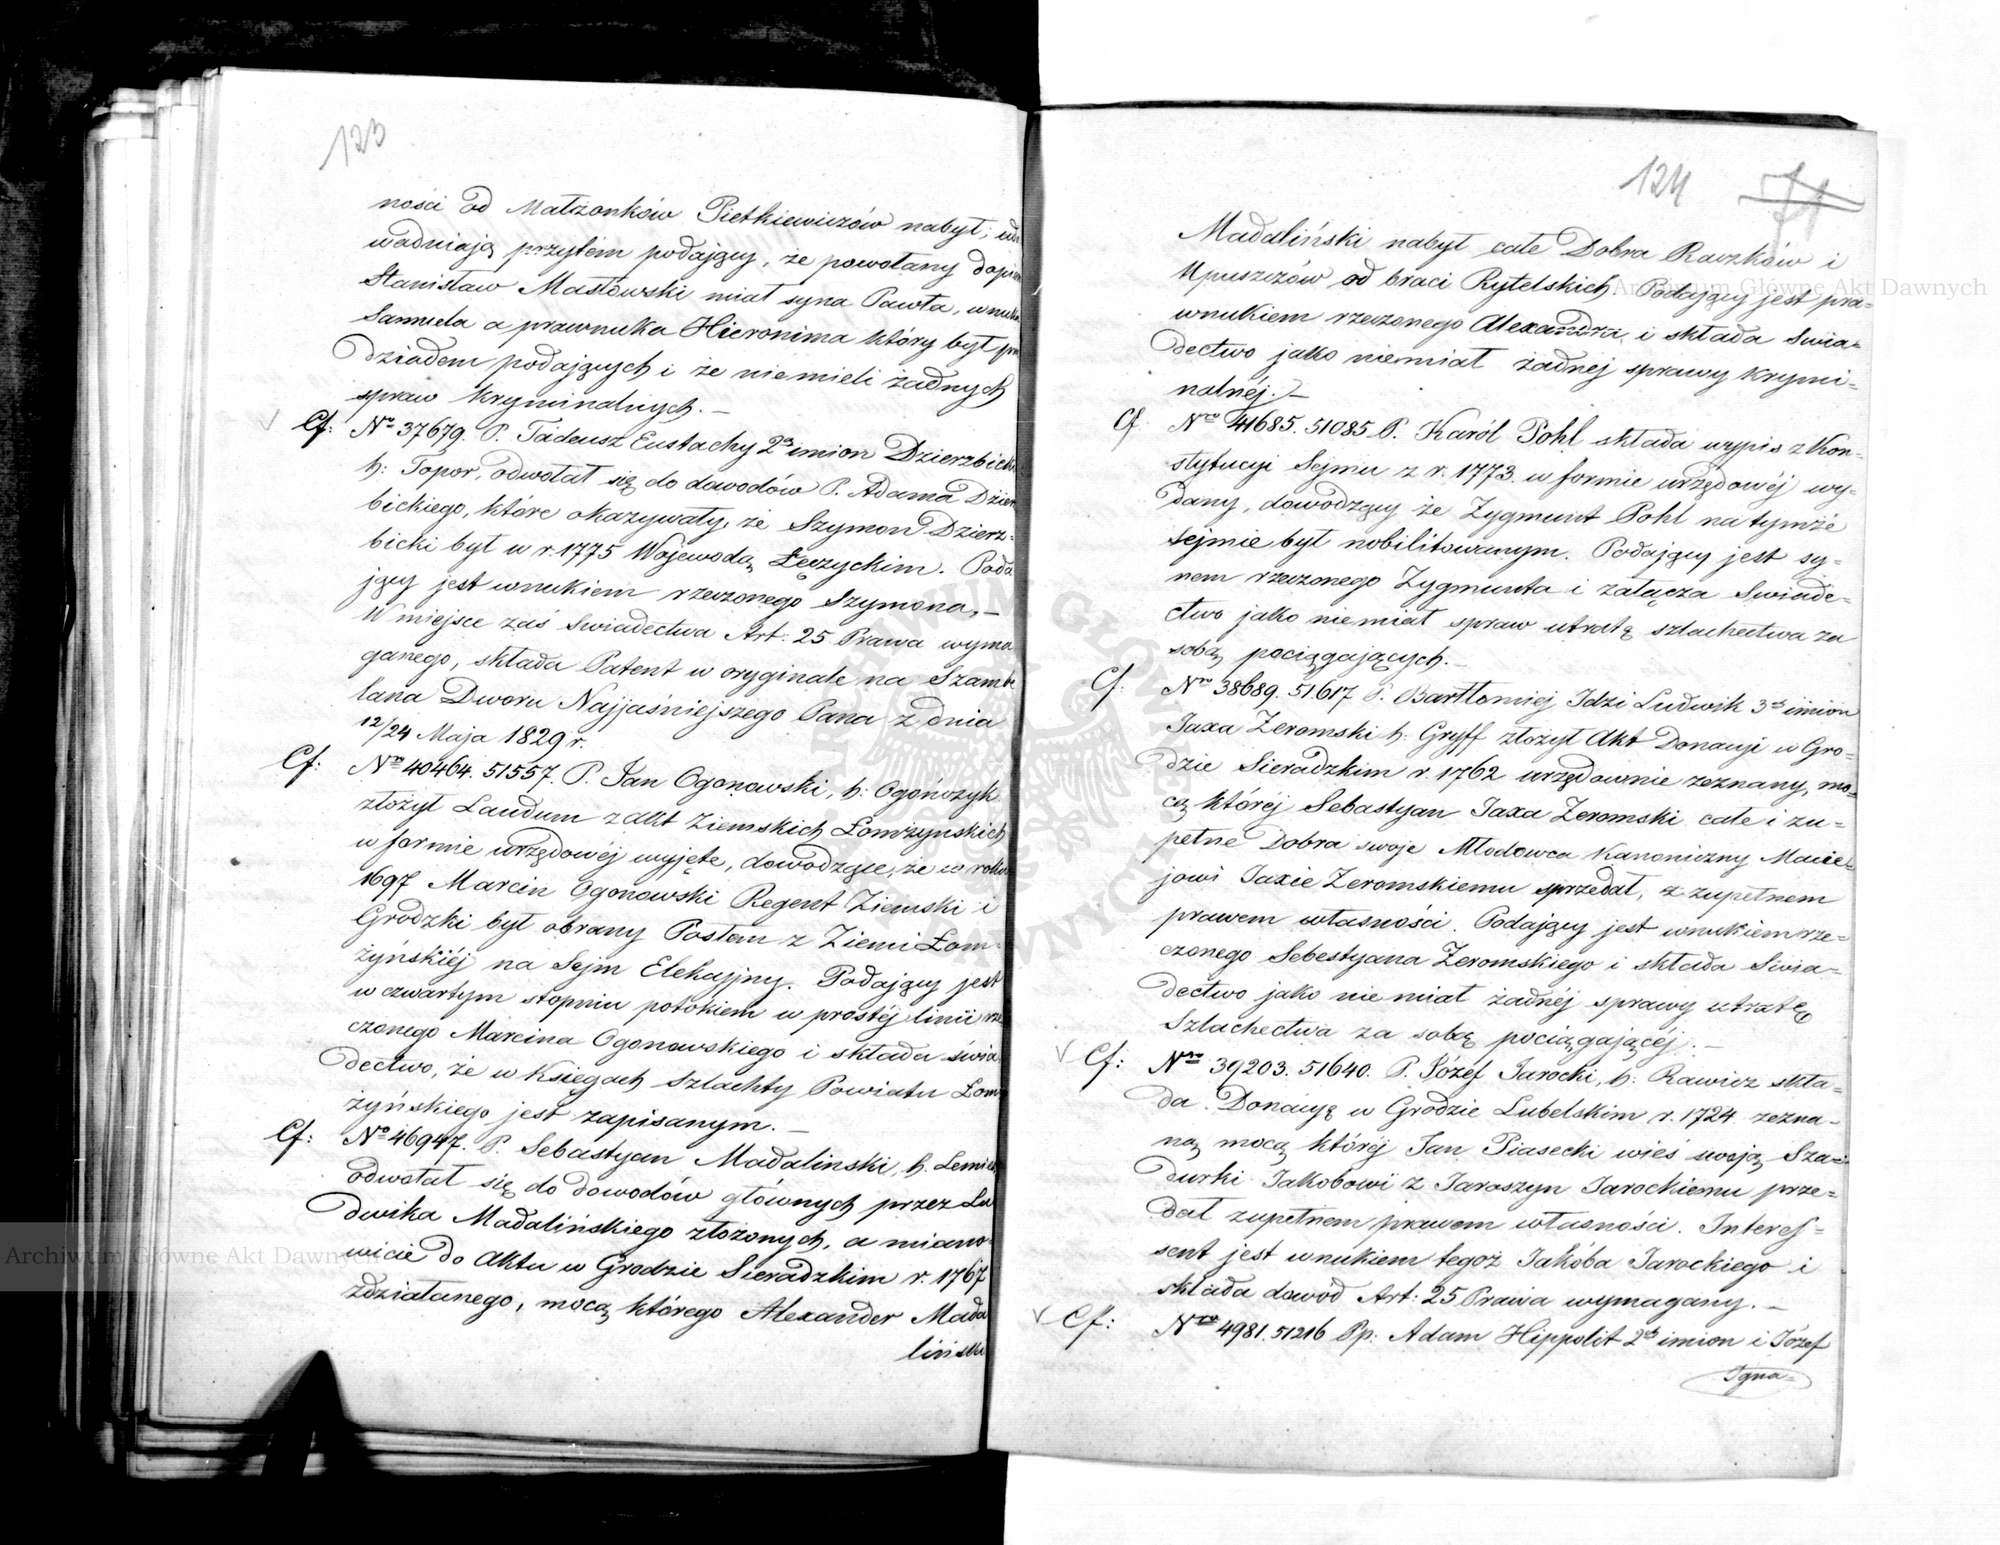 123
ności od Małżonków Pietkiewiczów nabył; udo
wadniają przytém podający, że powołany dopiero
Stanisław Masłowski miał syna Pawła, wnuka
Samuela a prawnuka Hieronima który był pra
dziadem podających i że nie mieli żadnych
spraw kryminalnych. —
Cf: No 37679. P. Tadeusz Eustachy 2ga imion Dzierzbicki
h: Topor, odwołał się do dowodów P. Adama Dzierz
bickiego, które okazywały, że Szymon Dzierz-
bicki był w r. 1775 Wojewodą Łęczyckim. Poda
jący jest wnukiem rzeczonego Szymona, —
W miejsce zaś Swiadectwa Art: 25 Prawa wyma
ganego, składa Patent w oryginale na Szambe
lana Dworu Najjaśniejszego Pana z dnia
12/24 Maja 1829 r.
Cf: Nro 40464. 51557. P. Jan Ogonowski, h: Ogończyk
złożył Laudum z Akt Ziemskich Łomżynskich
w formie urzędowéj wyjęte, dowodzące, że w roku
1697 Marcin Ogonowski Regent Ziemski i
Grodzki był obrany Posłem z Ziemi Łom-
żyńskiéj na Sejm Elekcyjny. Podający jest
w czwartym stopniu potokiem w prostéj linii rze
czonego Marcina Ogonowskiego i składa świa
dectwo, że w Księgach Szlachty Powiatu Łom
żyńskiego jest zapisanym. —
Cf: No 46947. P. Sebastyan Madalinski, h. Lemiesz
odwołał się do dowodów głównych przez Lu
dwika Madalińskiego złożonych, a miano-
wicie do Aktu w Grodzie Sieradzkim r. 1767
zdziałanego, mocą którego Alexander Mada
liński
124 71
Madaliński nabył całe Dobra Raczków i
Upuszczów od braci Rytelskich. Podający jest pra-
wnukiem rzeczonego Alexandra, i składa Swia-
dectwo jako niemiał żadnéj sprawy krymi-
nalnéj. —
Cf. Nro 41685. 51085 P. Karól Pohl składa wypis z Kon-
stytucyi Sejmu z r. 1773. w formie urzędowéj wy-
dany, dowodzący że Zygmunt Pohl na tymże
Sejmie był nobilitowanym. Podający jest sy-
nem rzeczonego Zygmunta i załącza Swiade-
ctwo jako nie miał spraw utratę szlachectwa za
sobą pociągających. —
Cf. Nro 38689. 51617 P. Bartłomiej Idzi Ludwik 3ch imion
Jaxa Zeromski h: Gryff złożył Akt Donacyi w Gro-
dzie Sieradzkim r. 1762 urzędownie zeznany, mo-
cą któréj Sebastyan Jaxa Zeromski całe i zu-
pełne Dobra swoje Młodowca Kanoniczny Macie-
jowi Jaxie Zeromskiemu sprzedał, z zupełnem
prawem własności. Podający jest wnukiem rze-
czonego Sebestyana Zeromskiego i składa Swia-
dectwo jako nie miał żadnéj sprawy utratę
Szlachectwa za sobą pociągającéj. —
Cf: Nro 39203. 51640. P. Józef Jarocki, h: Rawicz skła-
da Donacyę w Grodzie Lubelskim r. 1724 zezna-
ną mocą któréj Jan Piasecki wieś swoją Sza-
durki Jakobowi z Jaroszyn Jarockiemu prze-
dał zupełnem prawem własności. Interes-
sent jest wnukiem tegoż Jakóba Jarockiego i
składa dowód Art: 25 Prawa wymagany. —
Cf: Nro 4981. 51216 Pp: Adam Hippolit 2ch imion i Józef
Igna-
Archiwum Główne Akt Dawnych
Archiwum Główne Akt Dawnych
ARCHIWUM GŁÓWNE AKT DAWNYCH